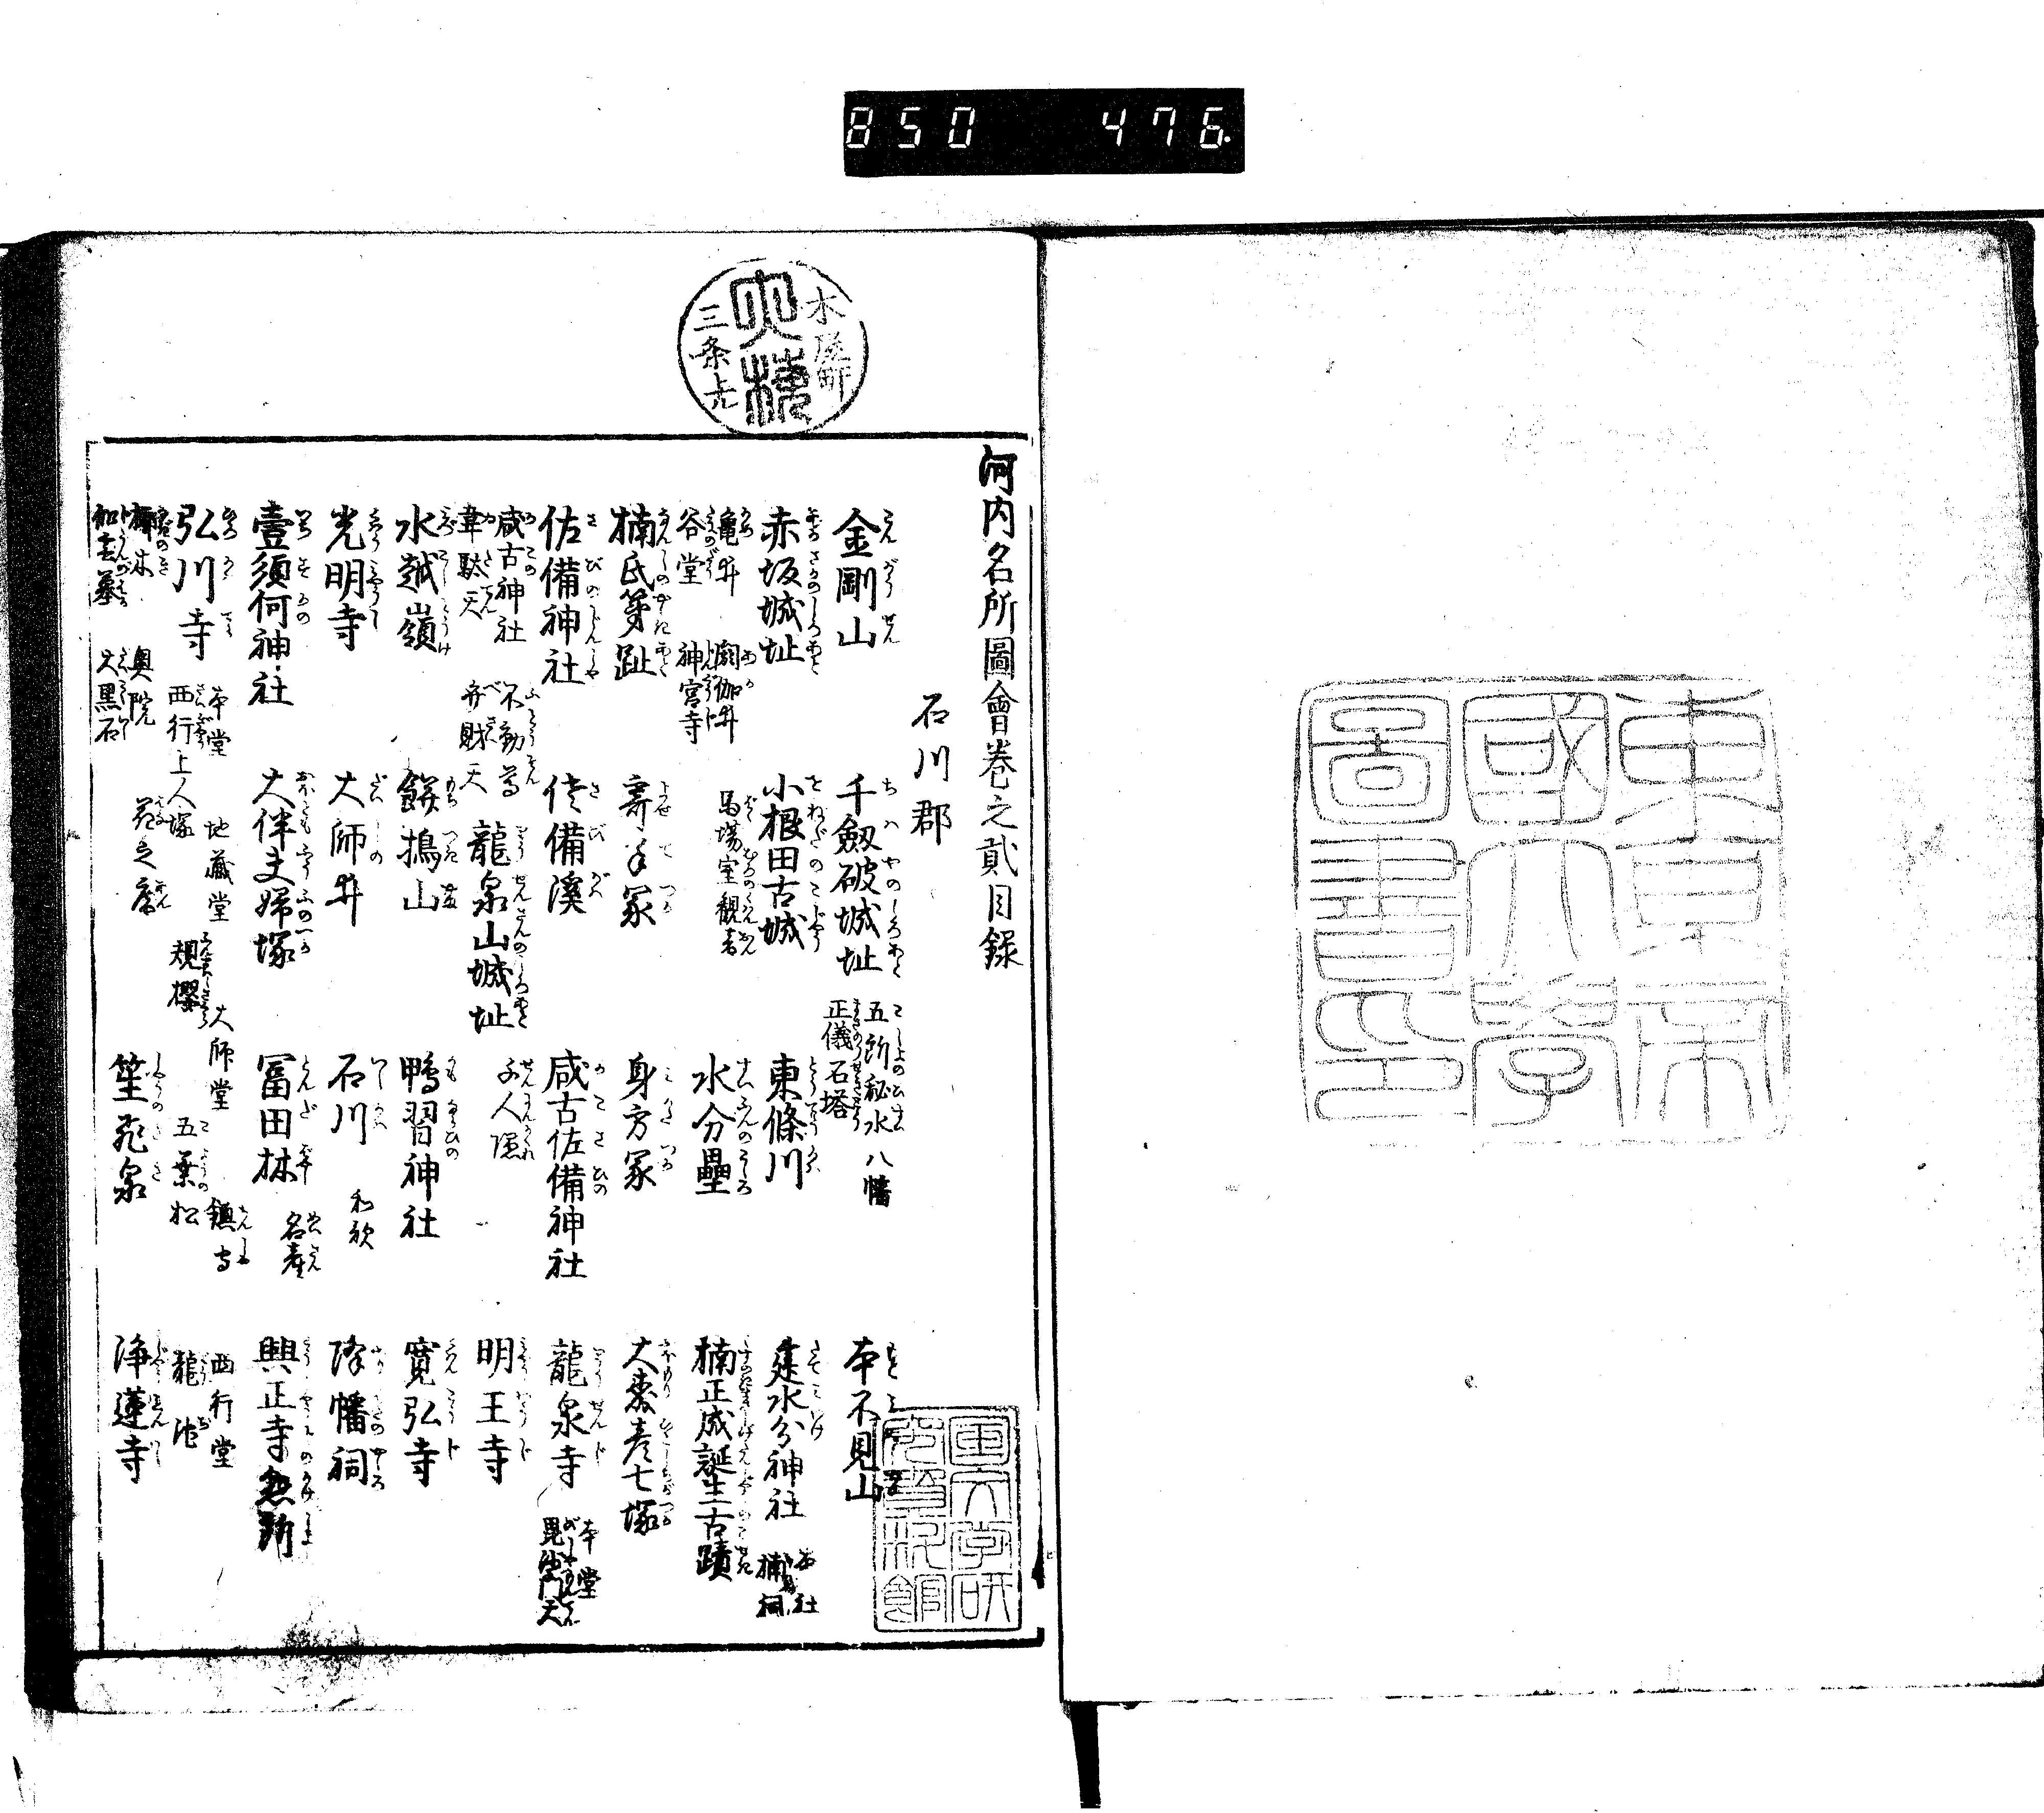 850 476
木屋町
大惣
三条上
河内名所圖會卷之貳目録
石川郡
金剛山 千劔破城址 五所秘水 八幡 正儀石塔 本不見山
赤坂城址 小根田古城 東條川 建水分神社 本社 楠祠
亀井 閼伽井 谷堂 神宮寺 馬場室観音 水分壘 楠正成誕生古蹟
楠氏芽趾 寄手冢 身方冢 大楽彦七塚
佐備神社 佐備溪 咸古佐備神社 龍泉寺 本堂 毘沙門天
咸古神社 不動尊 韋駄天 弁財天 龍泉山城址 千人隱 明王寺
水越嶺 餅搗山 鴨習神社 寛弘寺
光明寺 大師井 石川 和歌 降幡祠
壹須何神社 大伴夫婦塚 冨田林 名産 興正寺懸所
弘川寺 本堂 地蔵堂 大師堂 鎮守 西行堂 西行上人塚 規櫻 五葉松 龍池
奥院 大黒石 花之庵 笙泉 浄蓮寺
東京帝國大學圖書印
国文学研究資料館